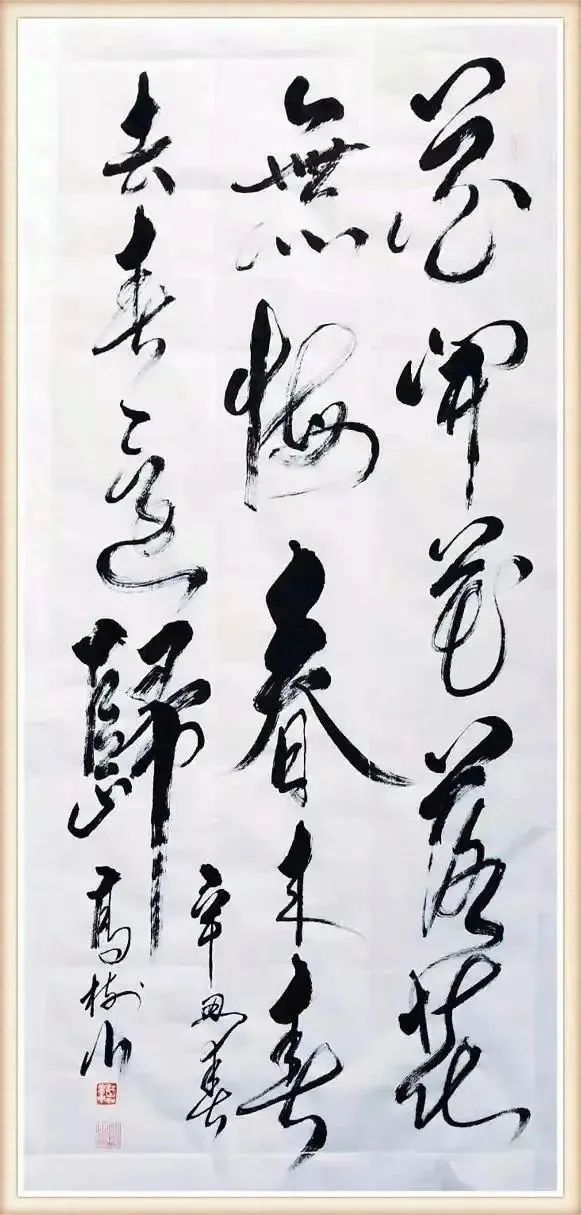 花開花落花
無悔春來春
去春還歸
辛丑春
高樹川